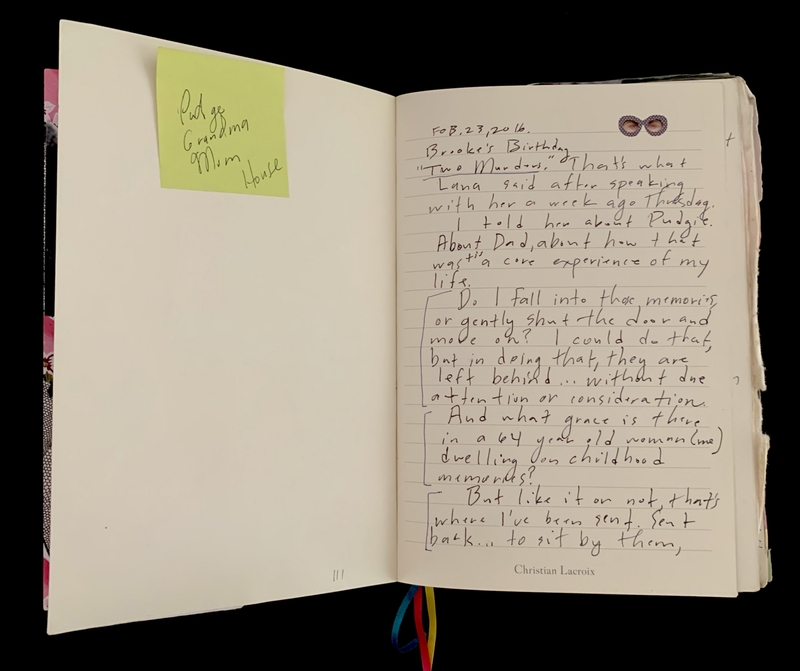 Pudge
Grandma
Mom
House
FEB. 23, 2016.
Brooke's Birthday
"Two Murders." That's what
Lana said after speaking
with her a week ago Thursday.
I told her about Pudgie.
About Dad, about how that
was "a core experience of my
life.
Do I fall into those memories,
or gently shut the door and
move on? I could do that,
but in doing that, they are
left behind... without due
attention or consideration.
And what grace is there
in a 64 year old woman (me)
dwelling on childhood
memories?
But like it or not, that's
where I've been sent. Sent
back... to sit by them,
Christian Lacroix